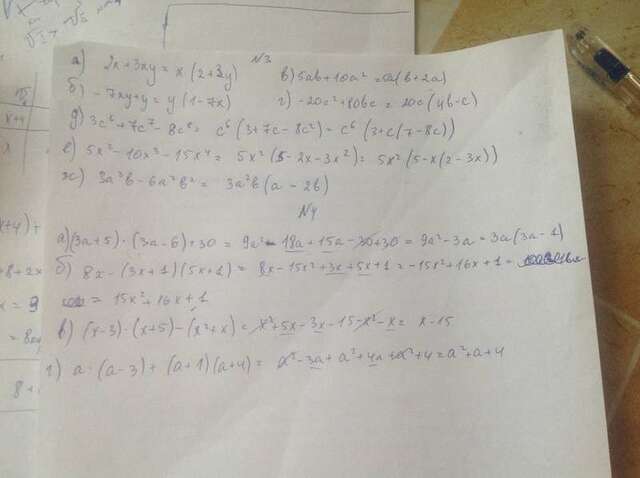 N3
а) 2x+3xy = x(2+3y) в) 5ab+10a² = 5a(b+2a)
б) -7xy+y = y(1-7x) г) -20c²+80bc = 20c(4b-c)
д) 3c⁶+7c⁷-8c⁸ = c⁶(3+7c-8c²) = c⁶(3+c(7-8c))
е) 5x²-10x³-15x⁴ = 5x²(5-2x-3x²) = 5x²(5-x(2-3x))
ж) 3a²b-6a²b² = 3a²b(a-2b)
N4
а) (3a+5)·(3a-6)+30 = 9a²-18a+15a-30+30 = 9a²-3a = 3a(3a-1)
б) 8x-(3x+1)(5x+1) = 8x-15x²+3x+5x+1 = -15x²+16x+1 =
= 15x²+16x+1
в) (x-3)·(x+5)-(x²+x) = x²+5x-3x-15-x²-x = x-15
г) a·(a-3)+(a+1)(a+4) = a²-3a+a²+4a+a²+4 = a²+a+4